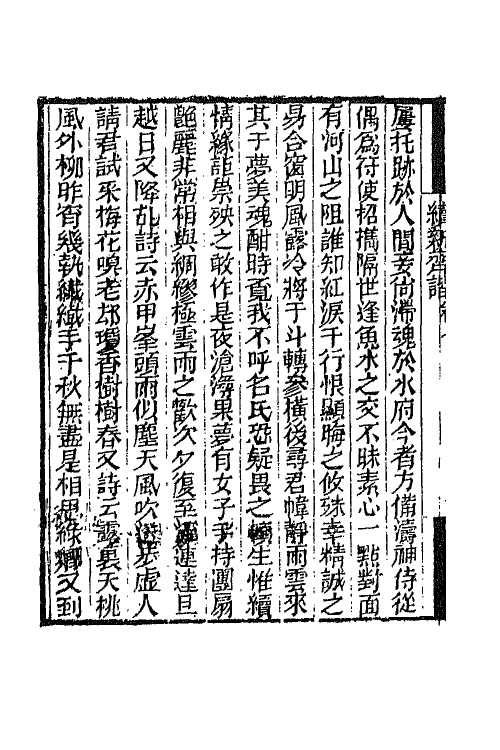 續新齊諧卷
屢托跡於人間妾尚滯魂於水府今者方備濤神侍從
偶爲符使招攜隔世逢魚水之交不昧素心一點對面
有河山之阻誰知紅淚千行恨顯晦之攸殊幸精誠之
易合窗明風露冷將于斗轉參橫後尋君幃靜雨雲來
其于夢美魂酣時覓我不呼名氏恐疑畏之頓生惟續
情緣詎祟殃之敢作是夜滄海果夢有女子手持團扇
艷麗非常相與綢繆極雲雨之歡次夕復至 連達旦
越日又降乩詩云赤甲峯頭雨似塵天風吹送步虛人
請君試采梅花嗅老却瓊香樹樹春又詩云露裏天桃
風外柳昨宵幾執纖纖手千秋無盡是相思 緣 又到